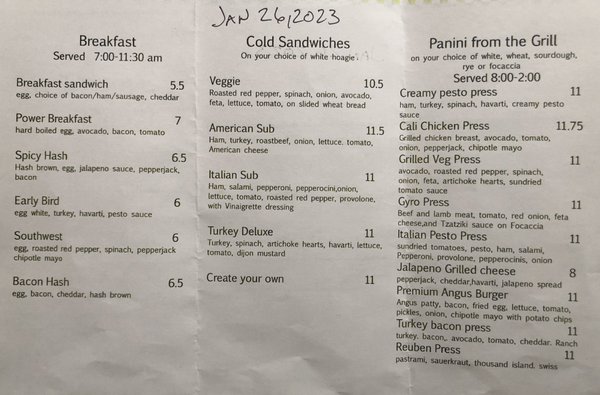 JAN 26,2023
Breakfast
Served 7:00-11:30 am
Breakfast sandwich 5.5
egg, choice of bacon/ham/sausage, cheddar
Power Breakfast 7
hard boiled egg, avocado, bacon, tomato
Spicy Hash 6.5
Hash brown, egg, jalapeno sauce, pepperjack,
bacon
Early Bird 6
egg white, turkey, havarti, pesto sauce
Southwest 6
egg, roasted red pepper, spinach, pepperjack
chipotle mayo
Bacon Hash 6.5
egg, bacon, cheddar, hash brown
Cold Sandwiches
On your choice of white hoagie
Veggie 10.5
Roasted red pepper, spinach, onion, avocado,
feta, lettuce, tomato, on slided wheat bread
American Sub 11.5
Ham, turkey, roastbeef, onion, lettuce, tomato,
American cheese
Italian Sub 11
Ham, salami, pepperoni, pepperocini,onion,
lettuce, tomato, roasted red pepper, provolone,
with Vinaigrette dressing
Turkey Deluxe 11
Turkey, spinach, artichoke hearts, havarti, lettuce,
tomato, dijon mustard
Create your own 11
Panini from the Grill
on your choice of white, wheat, sourdough,
rye or focaccia
Served 8:00-2:00
Creamy pesto press 11
ham, turkey, spinach, havarti, creamy pesto
sauce
Cali Chicken Press 11.75
Grilled chicken breast, avocado, tomato,
onion, pepperjack, chipotle mayo
Grilled Veg Press 11
avocado, roasted red pepper, spinach,
onion, feta, artichoke hearts, sundried
tomato sauce
Gyro Press 11
Beef and lamb meat, tomato, red onion, feta
cheese,and Tzatziki sauce on Focaccia
Italian Pesto Press 11
sundried tomatoes, pesto, ham, salami,
Pepperoni, provolone, pepperocinis, onion
Jalapeno Grilled cheese 8
pepperjack, cheddar,havarti, jalapeno spread
Premium Angus Burger 11
Angus patty, bacon, fried egg, lettuce, tomato,
pickles, onion, chipotle mayo with potato chips
Turkey bacon press 11
turkey, bacon,, avocado, tomato, cheddar. Ranch
Reuben Press 11
pastrami, sauerkraut, thousand island, swiss